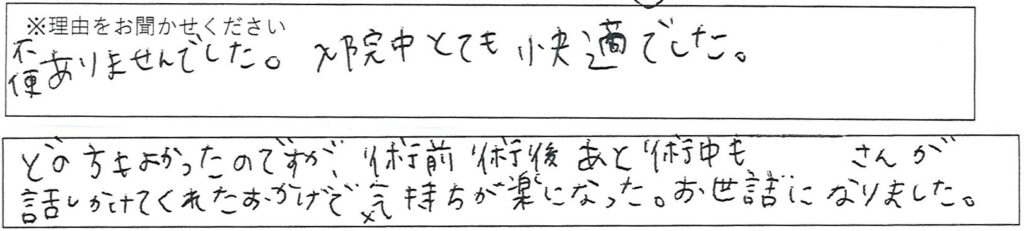 ※理由をお聞かせください
不便ありませんでした。入院中とても快適でした。
どの方もよかったのですが、術前術後あと術中も さんが
話しかけてくれたおかげで気持ちが楽になった。お世話になりました。